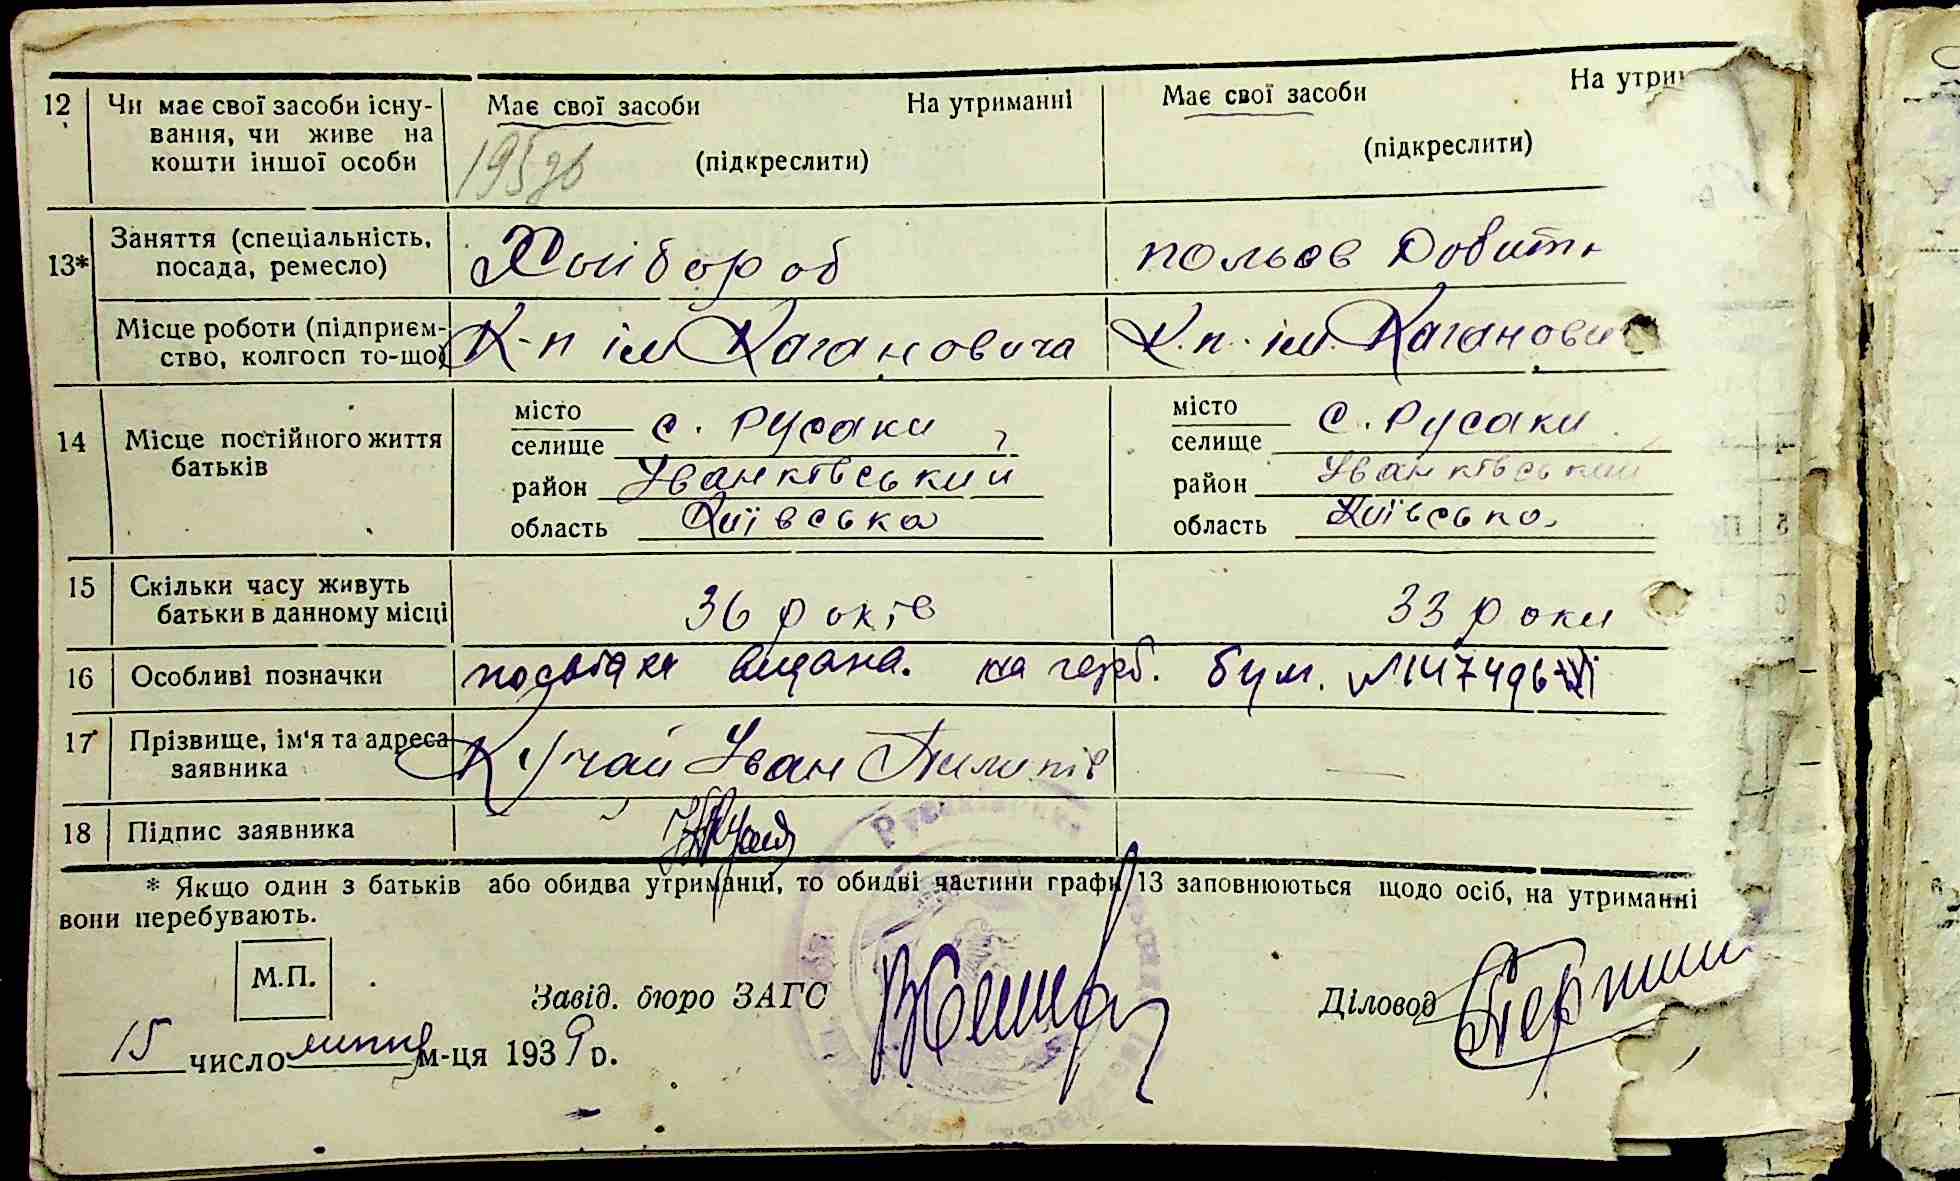 12 Чи має свої засоби існу- Має свої засоби На утриманні Має свої засоби На утрим
вання, чи живе на
кошти іншої особи (підкреслити) (підкреслити)
13* Заняття (спеціальність,
посада, ремесло) Хлібороб польов
Місце роботи (підприєм-
ство, колгосп то-що) К-п ім Кагановича К.п. ім Каганови
14 Місце постійного життя
батьків
місто
селище с. Русаки
район Іванківський
область Київська
місто
селище с. Русаки
район Іванківський
область Київська
15 Скільки часу живуть
батьки в данному місці 36 років 33 роки
16 Особливі позначки посвідка видана. на герб. бум.
17 Прізвище, ім'я та адреса
заявника Кучай Іван Пилипів
18 Підпис заявника
* Якщо один з батьків або обидва утриманці, то обидві частини графи 13 заповнюються щодо осіб, на утриманні
вони перебувають.
М.П.
Завід. бюро ЗАГС Діловод
15 число липня м-ця 1939 р.